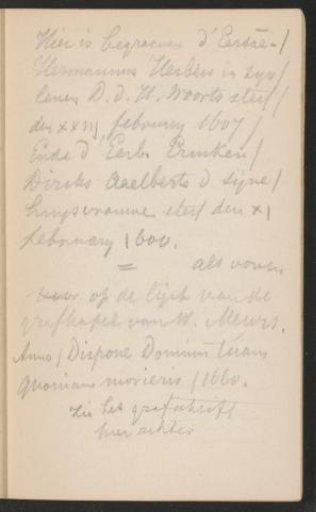 Hier is begraven d'Eersae-/
Hermannus Herbers in syn/
leven D. d. H. Woorts sterf/
den xxiij february 1607/
Ende d' Eerb. Ermken/
Dirriks Aaelberts d sijne/
huysvrouwe sterf den xi
february 1600.
= als voren
op de lijst van de
grafkapel van W. Mewis.
Anno / Dispone Dominus tuam
quoniam morieris / 1660.
zie het grafschrift
hier achter